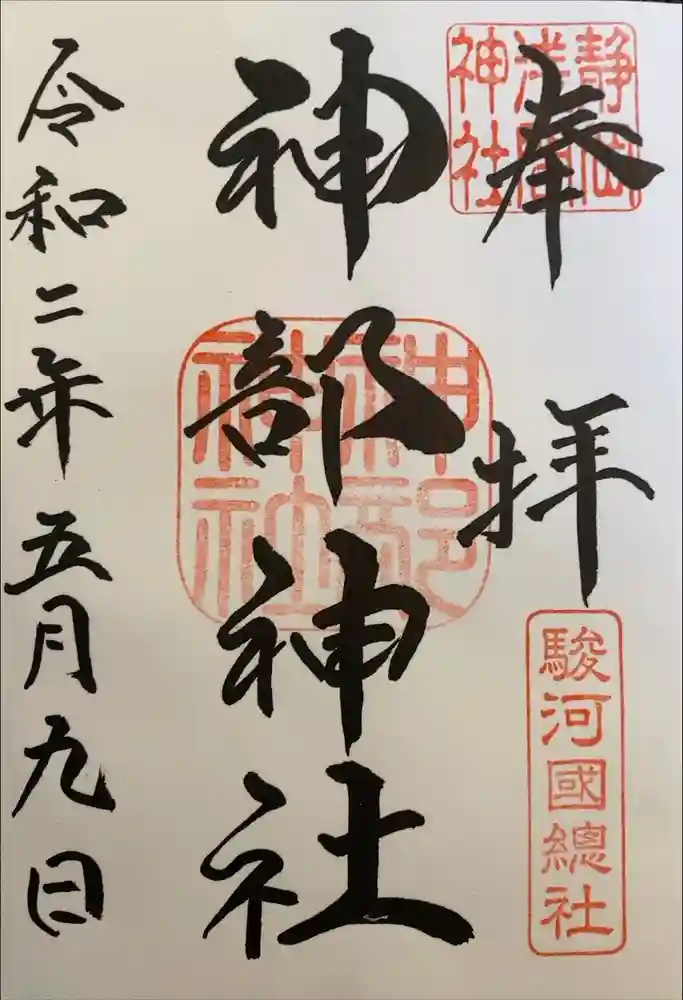 奉拝
静岡
浅間
神社
駿河國總社
神部神社
神部
神社
令和二年五月九日